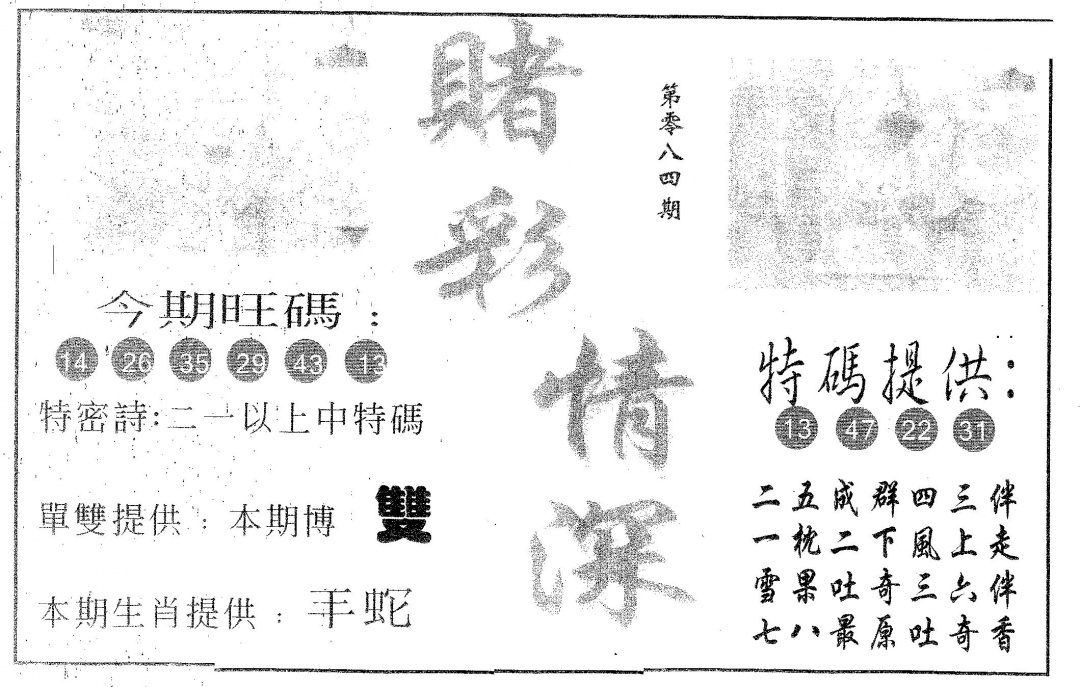 賭彩情深
第零八四期
今期旺碼：
14 26 35 29 43 13
特密詩:二一以上中特碼
單雙提供：本期博 雙
本期生肖提供：羊蛇
特碼提供：
13 47 22 31
二五成群四三伴
一枕二下風上走
雪果吐奇三六伴
七八最原吐奇香